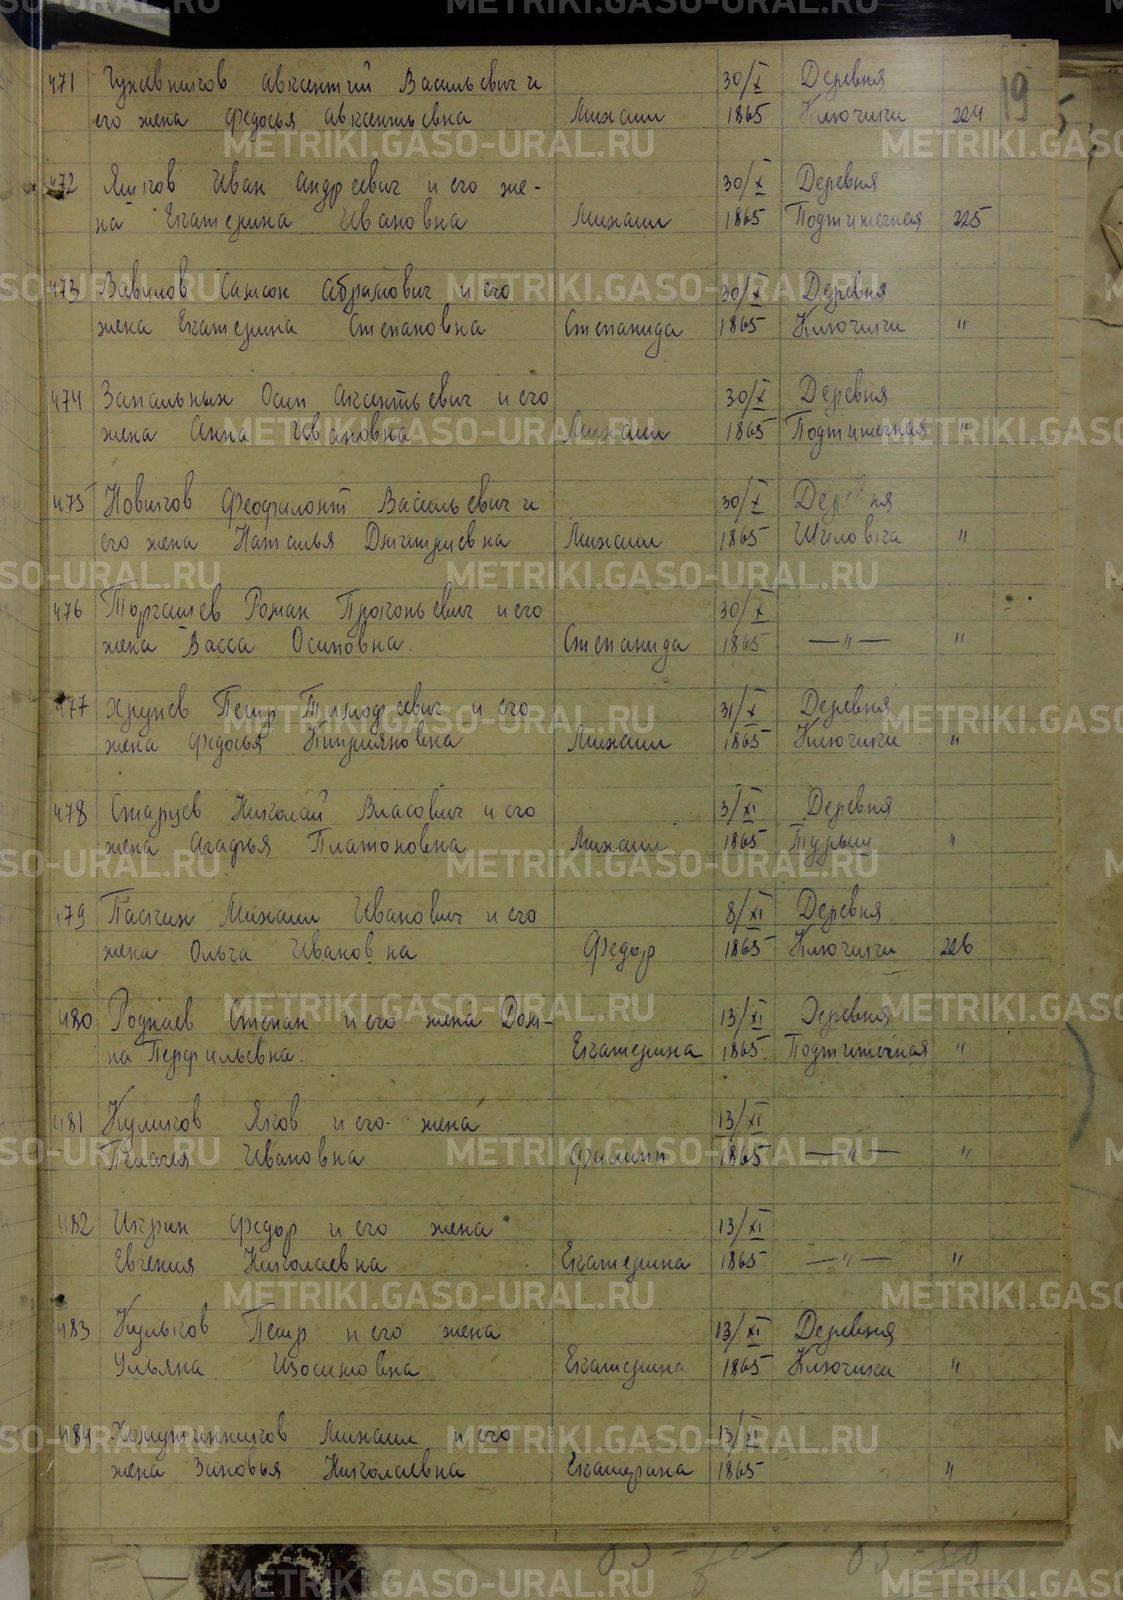 471 Гужавников Авксентий Васильевич и 30/X Деревня 19
его жена Федосья Авксентьевна Михаил 1865 Ключики 224
472 Яшков Иван Андреевич и его же- 30/X Деревня
на Екатерина Ивановна Михаил 1865 Подтижечная 225
473 Вавилов Самсон Абрамович и его 30/X Деревня
жена Екатерина Степановна Степанида 1865 Ключики "
474 Запальных Осип Аксентьевич и его 30/X Деревня
жена Анна Ивановна Михаил 1865 Подтижечная "
475 Новиков Феофилонт Васильевич и 30/X Деревня
его жена Наталья Дмитриевна Михаил 1865 Шиловка "
476 Торгашев Роман Прокопьевич и его 30/X
жена Васса Осиповна. Степанида 1865 —"— "
477 Хрунев Петр Тимофеевич и его 31/X Деревня
жена Федосья Киприяновна Михаил 1865 Ключики "
478 Старцев Николай Власович и его 3/XI Деревня
жена Агафья Платоновна Михаил 1865 Турыш "
479 Паскин Михаил Иванович и его 8/XI Деревня
жена Ольга Ивановна Федор 1865 Ключики 226
480 Степан и его жена Дом- 13/XI Деревня
на Перфильевна. Екатерина 1865 Подтижечная "
481 Куликов Яков и его жена 13/XI
Пелагея Ивановна Филипп 1865 —"— "
482 Икрин Федор и его жена 13/XI
Евгения Николаевна Екатерина 1865 —"— "
483 Кулыков Петр и его жена 13/XI Деревня
Ульяна Изосимовна Екатерина 1865 Ключики "
484 Хомутинников Михаил и его 13/XI
жена Зиновья Николаевна Екатерина 1865 "
METRIKI.GASO-URAL.RU